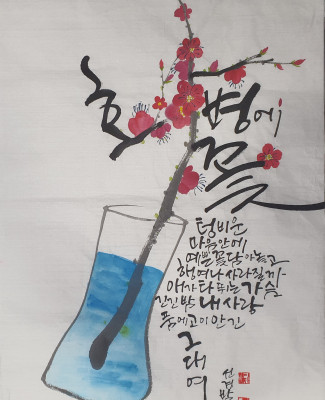 호
병에
꽃
텅비운
마음안에
예쁜 꽃담아놓고
행여나 사라질까
애가타 뛰는 가슴
긴긴밤 내사랑
품에고이 안긴
그대여